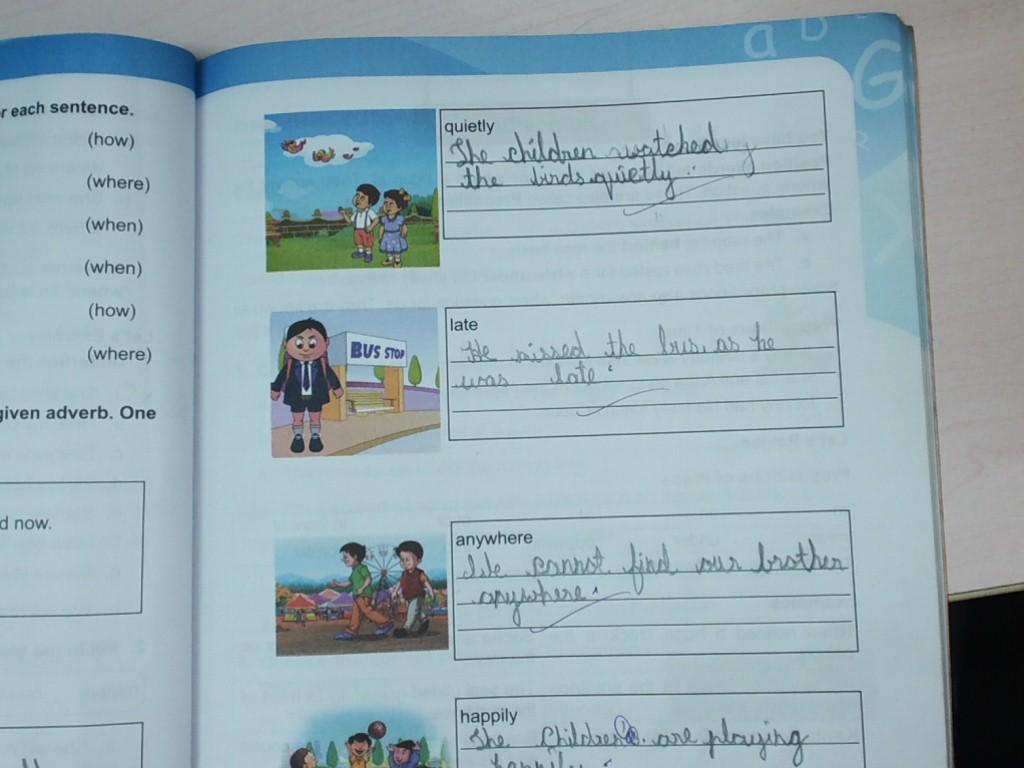 or each sentence.
(how)
(where)
(when)
(when)
(how)
(where)
given adverb. One
d now.
a b
G
quietly
The children watched
the birds quietly.
BUS STOP
late
He missed the bus, as he
was late.
anywhere
We cannot find our brother
anywhere.
happily
The children are playing
happily.